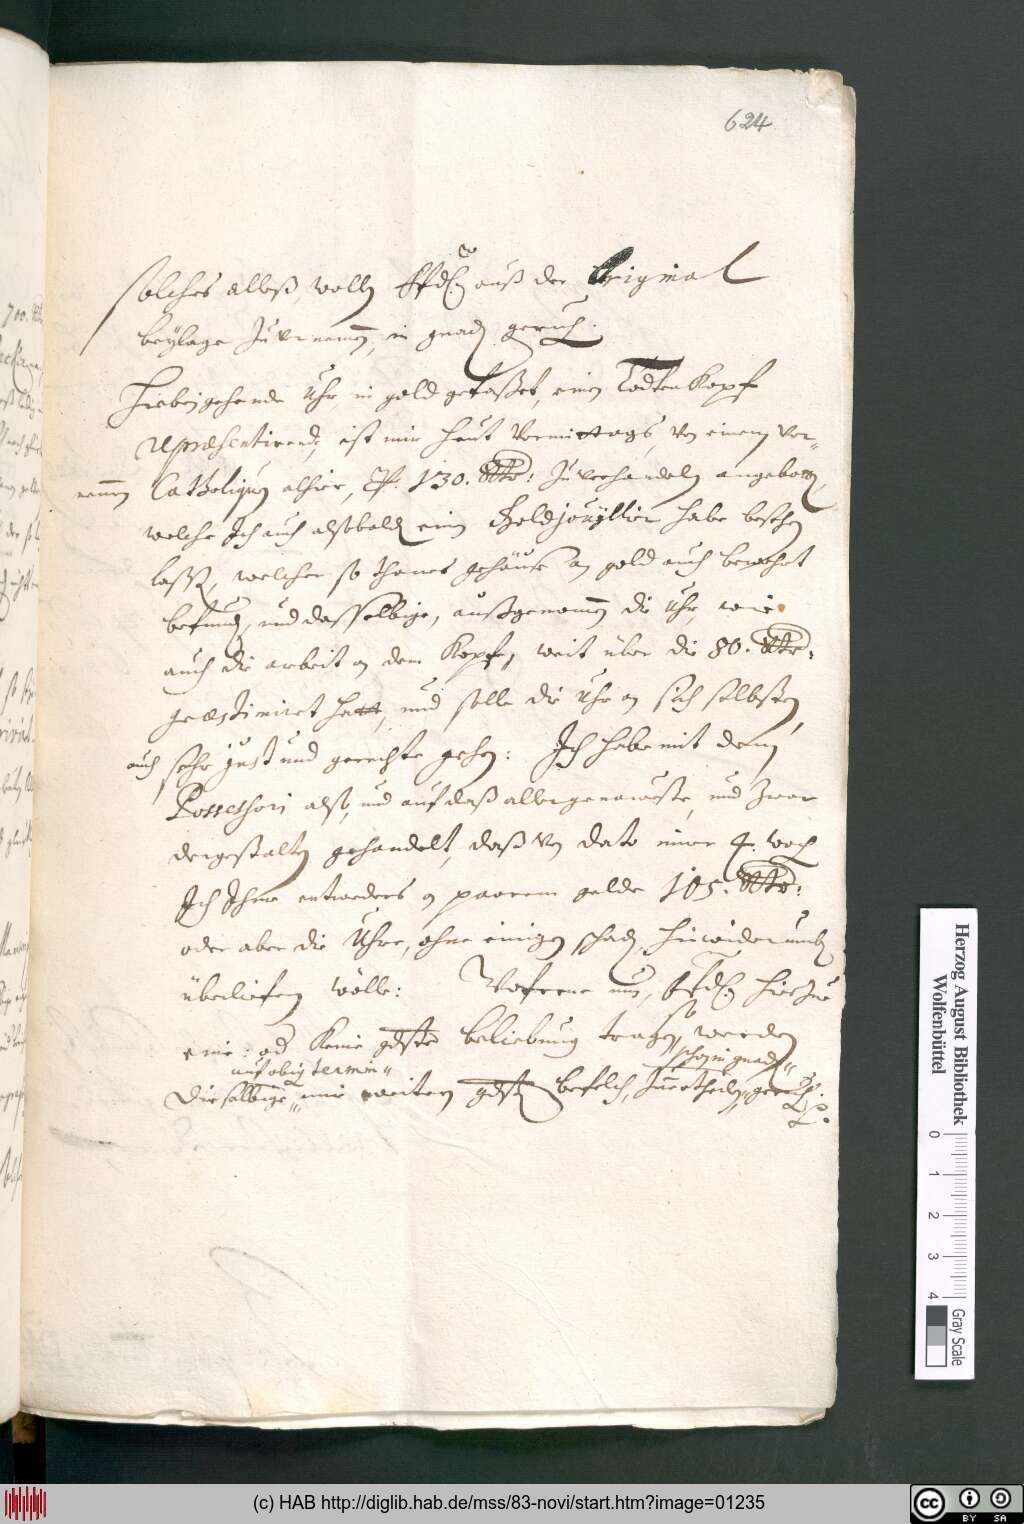 624
solches alles, wolle Efd: auß der Original
beÿlage zu vernemen, in gnaden geruh:
Hiebeigehende Uhr, in gold gefaßet, einen Todten Kopf
repræsentirend, ist mir heut Vormittags, von einem vor-
nemen Catholiquen alhier, pr. 130. Rthr: zu verhandeln angeboten,
welche Ich auch alsobald einen Goldjouÿllier habe besehen
lassen, welcher so thanes gehäuse an gold auch bewehrt
befunden, und dasselbige, außgenomen die Uhr, wie
auch die arbeit an dem Kopfe, weit über die 80. Rthr:
præstimiret hatt, und solle die Uhr an sich selbsten,
auch sehr just und gerechte gehen: Ich habe mit dem
Possessori also, und auf daß allergenaweste, und zwar
dergestalten gehandelt, daß von dato inner 4. woch
Ich Ihme entweders an paarem gelde 105. Rthr:
oder aber die Uhre, ohne einigen schaden, hinwiderumb
überliefern wölle: Wofrne nun, Efd: hierzue
eine: od Keine gdste beliebung tragen, werden
auf obig termin
so schon in gnaden
Dieselbige mir weitern gdsten befelch, zu ertheilen geruh:
Herzog August Bibliothek
Wolfenbüttel
0 1 2 3 4
Gray Scale
(c) HAB http://diglib.hab.de/mss/83-novi/start.htm?image=01235
cc BY SA